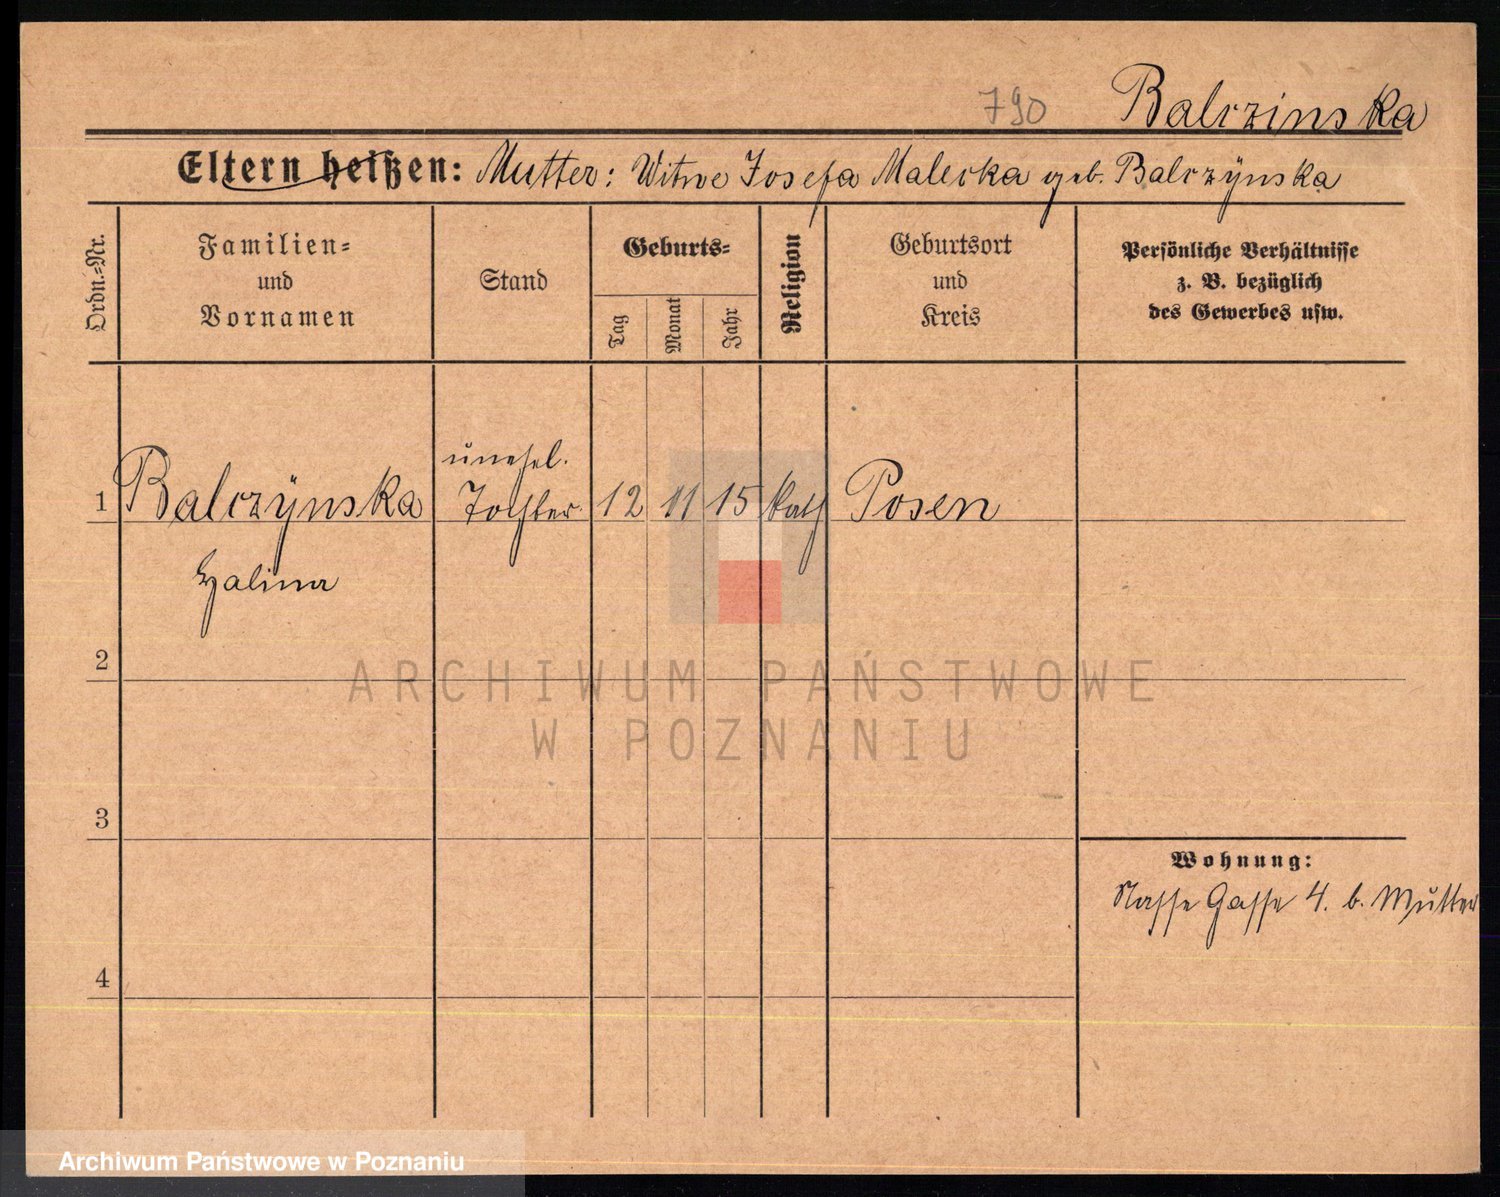 790 Balczinska
Eltern heißen: Mutter: Witwe Josefa Malecka geb. Balczÿnska
Ordn.-Nr.
Familien-
und
Vornamen
Stand
Geburts-
Tag
Monat
Jahr
Religion
Geburtsort
und
Kreis
Persönliche Verhältnisse
z. B. bezüglich
des Gewerbes usw.
unehel.
1 Balczÿnska Tochter 12 11 15 kath Posen
Halina
2
ARCHIWUM PAŃSTWOWE
W POZNANIU
3
Wohnung:
Nasse Gasse 4. b. Mutter
4
Archiwum Państwowe w Poznaniu